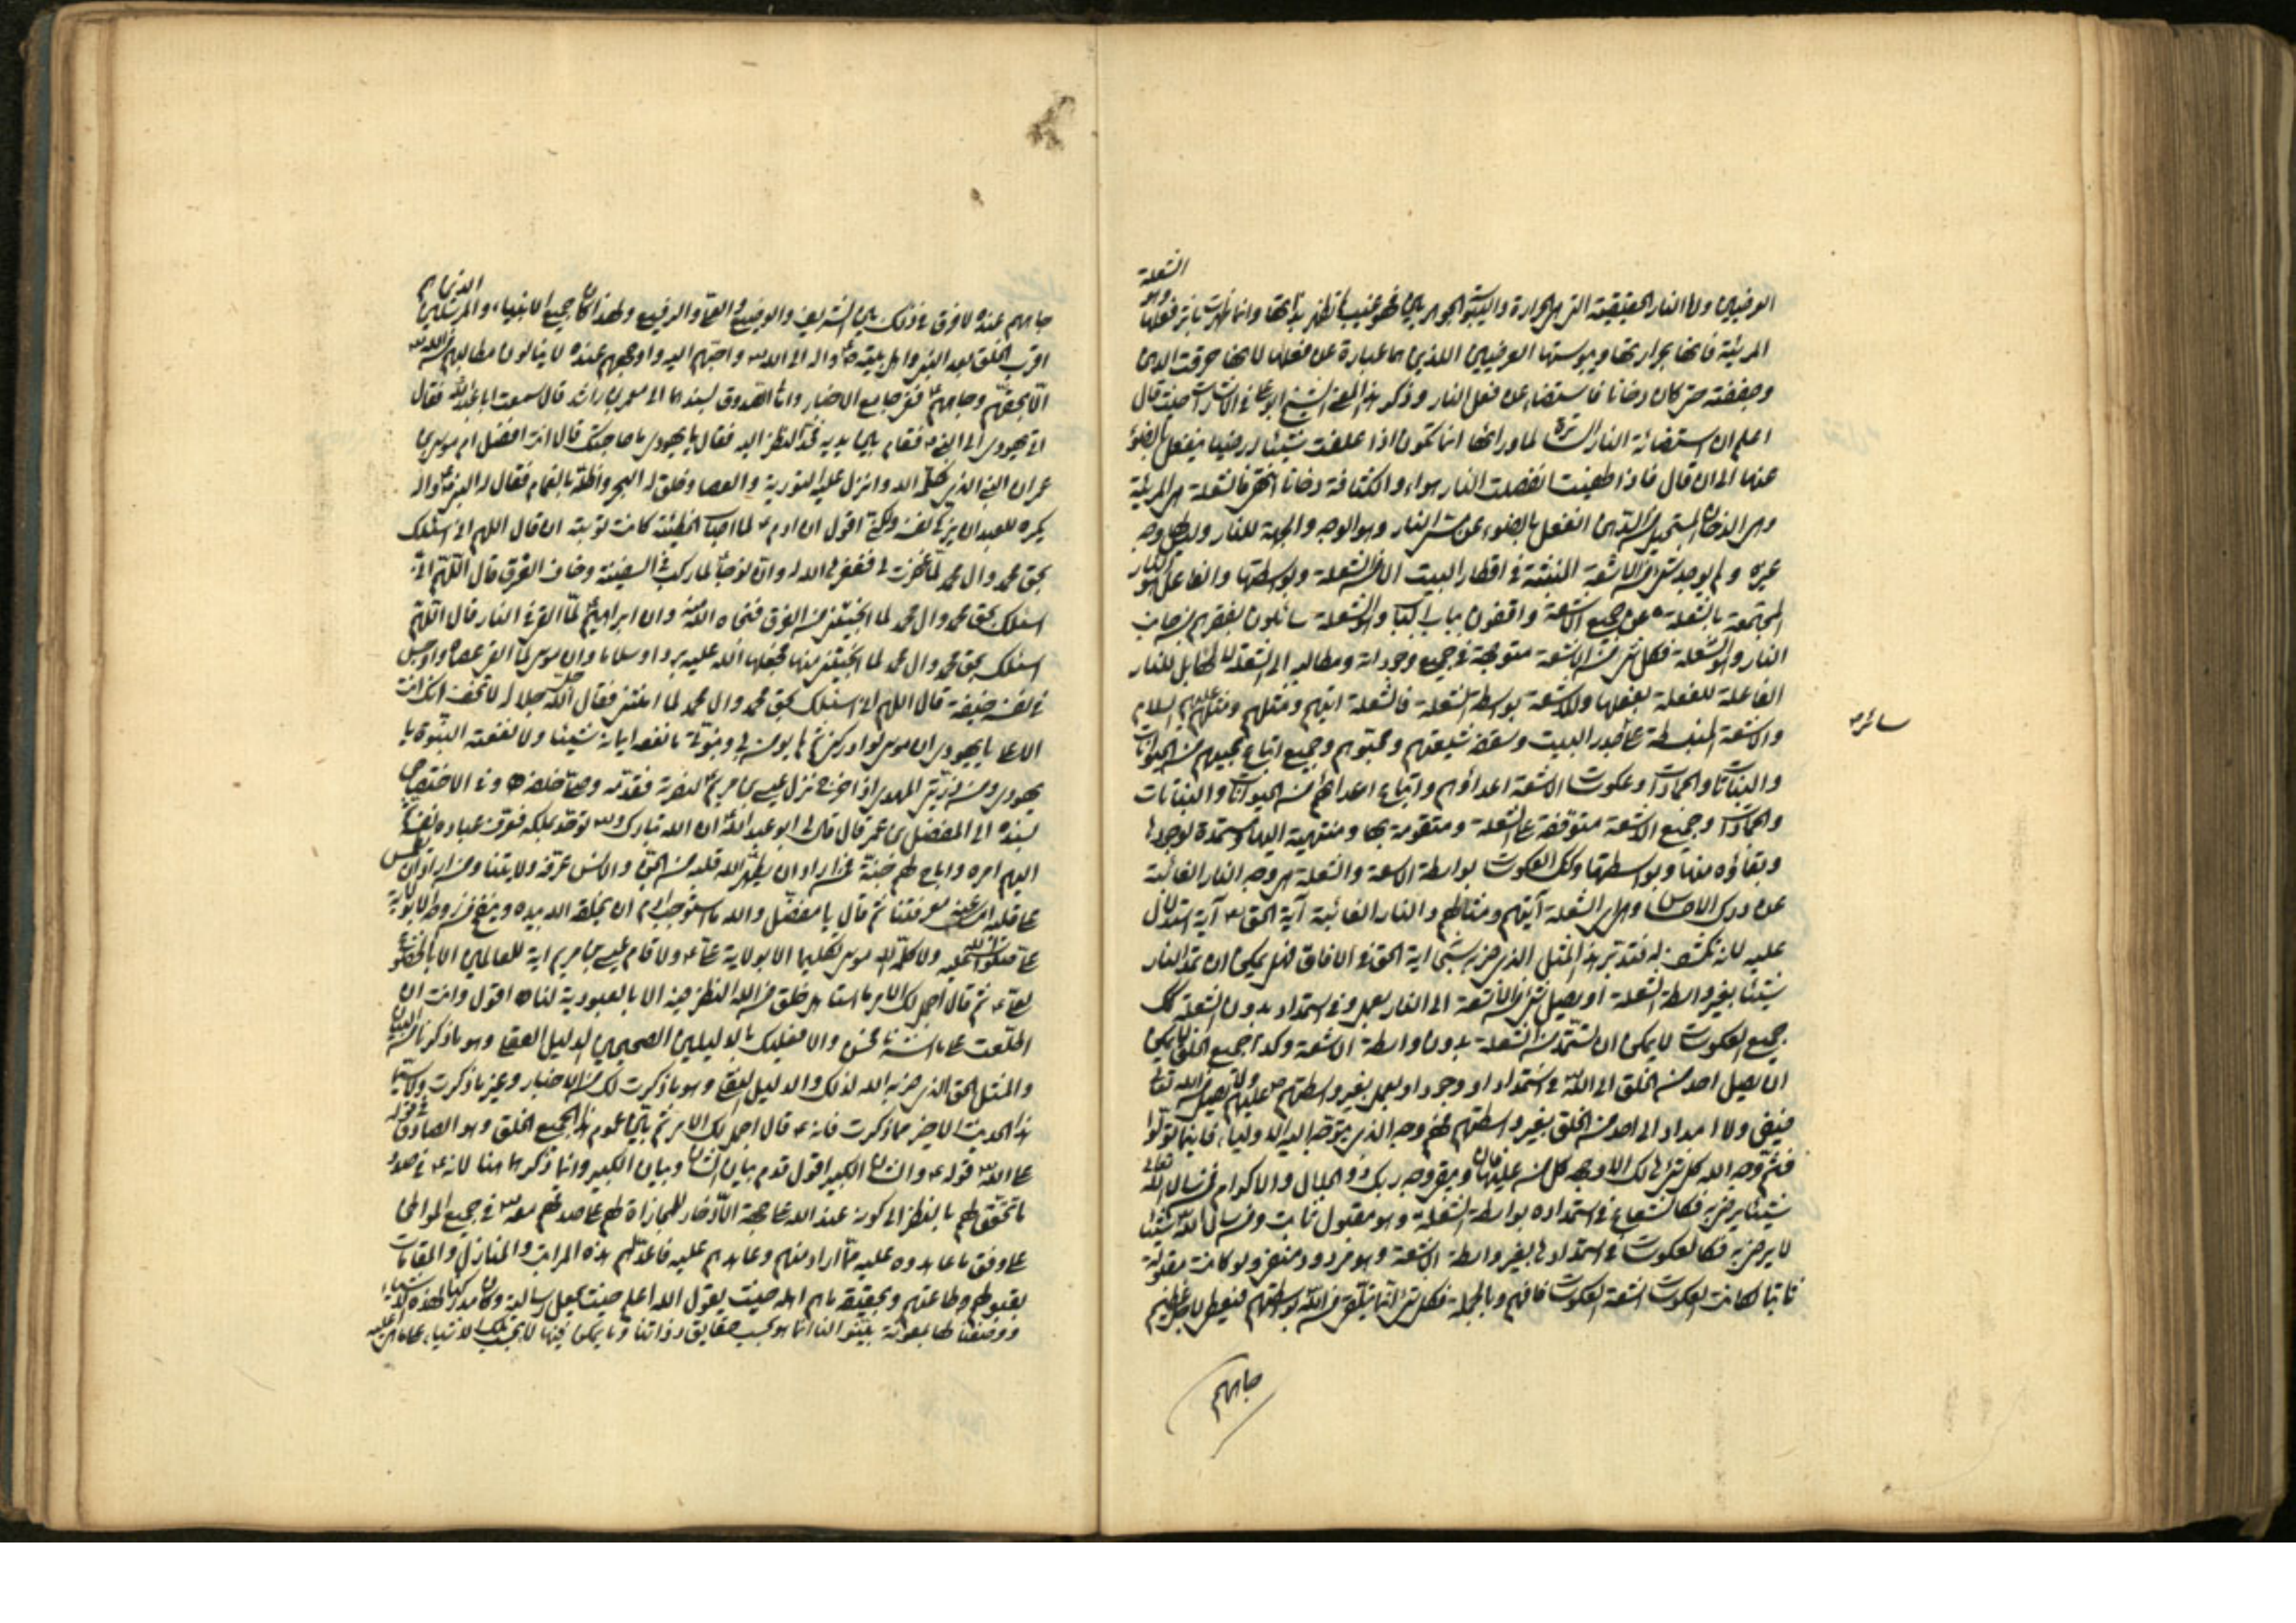 العرضيين واما النار الحقيقية التي هي الحرارة واليبوسة الجوهريان فهو غيب لا تظهر بذاتها وانما ظهرت باثر فعلها وهو الشعلة
المرئية فانها بحرارتها ويبوستها العرضيين اللذين هما عبارة عن فعلها لانها حرقت الدهن
وجففته حتى كان دخانا فاستضاء عن فعل النار وذكر هذا المعنى الشيخ ابو علي في الاشارات حيث قال
اعلم ان استضائة النار الساترة لما ورائها انما تكون اذا علقت شيئا ارضيا ينفعل بالضوء
عنها الى ان قال فاذا طفئت انفصلت النار هواء والكثافة دخانا انتهى فالشعلة هي المرئية
وهي الدخان المستحيل من الدهن انفعل بالضوء عن مس النار وهو الوجه والجهة للنار وليس لها وجه
غيره ولم يوجد شيء من الاشعة المنبثة في اقطار البيت الا من الشعلة وبواسطتها والفاعل هو النار
المحتجبة بالشعلة عن جميع الاشعة واقفون بباب الشعلة سائلون بفقرهم من جانب
النار وهو الشعلة فكل شيء من الاشعة متوجهة في جميع وجوداته ومطالبه الى الشعلة القابل للنار
الفاعلة للشعلة بفعلها وللاشعة بواسطة الشعلة فالشعلة آيتهم ومثلهم عليهم السلام
سائر
والاشعة المنبسطة على جدر البيت وسقفه شيعتهم ومحبوهم وجميع اتباع محبيهم من الحيوانات
والنباتات والجمادات وعكوسات الاشعة اعداؤهم واتباع اعدائهم من الحيوانات والنباتات
والجمادات وجميع الاشعة متوقفة على الشعلة ومتقومة بها ومنتهية اليها ومستمدة لوجودها
وبقاؤه منها وبواسطتها وكذلك العكوسات بواسطة الاشعة والشعلة هي وجه النار الغائبة
عن درك الاحساس وهي اي الشعلة آيتهم ومثالهم والنار الغائبة آية الحق آية استدلال
عليه لانه تكشف له فتدبر هذا المثل الذي ضربه سبحانه آية الحق في الافاق فهل يمكن ان تمد النار
شيئا بغير واسطة الشعلة او يصل شيء من الاشعة الى النار بعمل وفي استمداد بدون الشعلة كذلك
جميع العكوسات لا يمكن ان تستمد من الشعلة بدون واسطة الاشعة وكذا جميع الخلق لا يمكن
ان يصل احد من الخلق الى الله في استمداد او وجود او بعمل بغير واسطتهم عليهم ولا يصل من الله تعالى
فيض ولا امداد الى احد من الخلق بغير واسطتهم فهم وجه الذي يتوجه اليه الاولياء فاينما تولوا
فثم وجه الله كل شيء هالك الا وجهه كل من عليها فان ويبقى وجه ربك ذو الجلال والاكرام فمن سال الله تعالى
شيئا يرضى به فكالشعاع في استمداده بواسطة الشعلة وهو مقبول ثابت ومن سال الله شيئا
لا يرضى به فكالعكوسات في استمدادها بغير واسطة الاشعة وهو مردود منفي ولو كانت مقبولة
ثابتا لكانت العكوسات اشعة العكوسات فافهم وبالجملة فكل شيء انما يتلقى من الله بواسطتهم فيعطى لاجل عظيم
جاههم
جاههم عنده لا فرق في ذلك بين الشريف والوضيع والعالي والرفيع ولهذا كان جميع الانبياء والمرسلين الذين هم
اقرب الخلق بعد النبي واهل بيته صلى الله عليه واله الى الله واحبهم اليه واوجههم عنده لا ينالون مطالبهم من الله
الا بحقهم وجاههم ففي جامع الاخبار وامالي الصدوق بسندهما الى معمر بن راشد قال سمعت ابا عبد الله فقال
اتى يهودي الى النبي فقام بين يديه يحد النظر اليه فقال يا يهودي ما حاجتك قال انت افضل ام موسى بن
عمران النبي الذي كلمه الله وانزل عليه التورية والعصا وفلق له البحر واظله بالغمام فقال له النبي صلى الله عليه واله
يكره للعبد ان يزكي نفسه ولكني اقول ان ادم لما اصاب الخطيئة كانت توبته ان قال اللهم اني اسئلك
بحق محمد وال محمد لما غفرت لي فغفر الله له وان نوحا لما ركب في السفينة وخاف الغرق قال اللهم اني
اسئلك بحق محمد وال محمد لما انجيتني من الغرق فنجاه الله منه وان ابراهيم لما القي في النار قال اللهم
اسئلك بحق محمد وال محمد لما انجيتني منها فجعلها الله عليه بردا وسلاما وان موسى لما القى عصاه واوجس
في نفسه خيفة قال اللهم اني اسئلك بحق محمد وال محمد لما امنتني فقال الله جل جلاله لا تخف انك انت
الاعلى يا يهودي ان موسى لو ادركني ثم لم يؤمن بي وبنبوتي ما نفعه ايمانه شيئا ولا نفعته النبوة يا
يهودي ومن ذريتي المهدي اذا خرج نزل عيسى بن مريم لنصرته فقدمه وصلى خلفه وفي الاختصاص
بسنده الى المفضل بن عمر قال قال لي ابو عبد الله ان الله تبارك وتعالى توحد بملكه فعرف عباده نفسه ثم فوض
اليهم امره واباح لهم جنته فمن اراد ان يطهر الله قلبه من الجن والانس عرفه ولايتنا ومن اراد ان يطمس
على قلبه امسك عنه معرفتنا ثم قال يا مفضل والله ما استوجب ادم ان يخلقه الله بيده وينفخ فيه من روحه الا بولاية
علي صلوات الله عليه ولا كلم الله موسى تكليما الا بولاية علي ولا اقام عيسى بن مريم اية للعالمين الا بالخضوع
لعلي ثم قال اجمل لك الامر ما استاهل خلق من الله النظر اليه الا بالعبودية لنا اقول وانت ان
اطلعت على ما اشرنا والا فعليك بالدليلين الصحيحين الدليل العقلي وهو ما ذكرنا من البيان
والمثل الحق الذي ضربه الله لذلك والدليل النقلي وهو ما ذكرت لك من الاخبار وغير ما ذكرت ولا سيما
هذا الحديث الاخير مما ذكرت فانه قال اجمل لك الامر ثم بين عموم هذا لجميع الخلق وهو الصادق في قوله
على الله قوله والشان الكبير اقول قدم بيان الشان وبيان الكبير وانما ذكرهما هنا لانه في صدد
ما تحقق لهم بالنظر الى كونه عند الله على جهة الادخار للمجازاة لهم على صدقهم معه في جميع المواطن
على وفق ما عاهدوه عليه مما اراد منهم وعاهدهم عليه فاعد لهم هذه المراتب والمنازل والمقامات
بقبولهم وطاعتهم وبحقيقة ما هم اهله حيث يقول الله اعلم حيث يجعل رسالته وكان مدركنا لهذه الاشياء
ووصفنا لها بمعونة بينوا لنا انما هو بحسب حقايق ذواتنا وما يمكن فينا لا بحسب تلك الاشياء على ما هي عليه